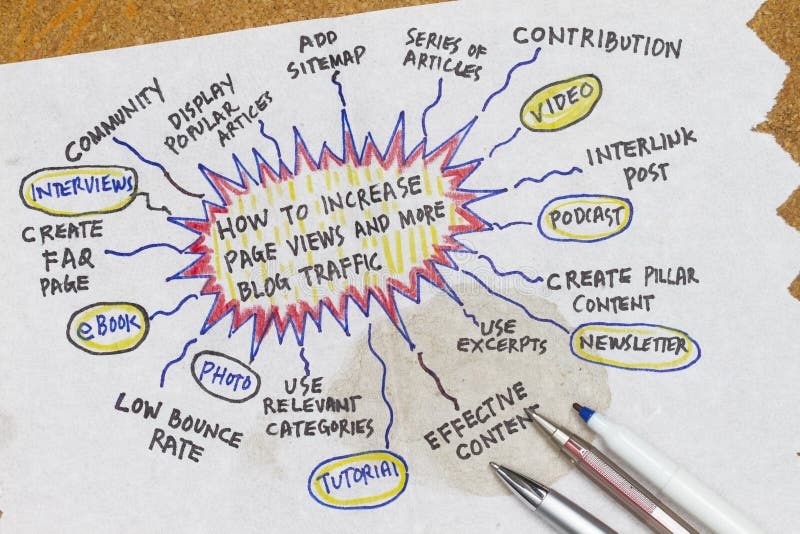 HOW TO INCREASE
PAGE VIEWS AND MORE
BLOG TRAFFIC
ADD
SITEMAP
SERIES OF
ARTICLES
CONTRIBUTION
VIDEO
INTERLINK
POST
PODCAST
CREATE PILLAR
CONTENT
NEWSLETTER
USE
EXCERPTS
EFFECTIVE
CONTENT
TUTORIAL
USE
RELEVANT
CATEGORIES
PHOTO
LOW BOUNCE
RATE
eBOOK
CREATE
FAQ
PAGE
INTERVIEWS
COMMUNITY
DISPLAY
POPULAR
ARTICES